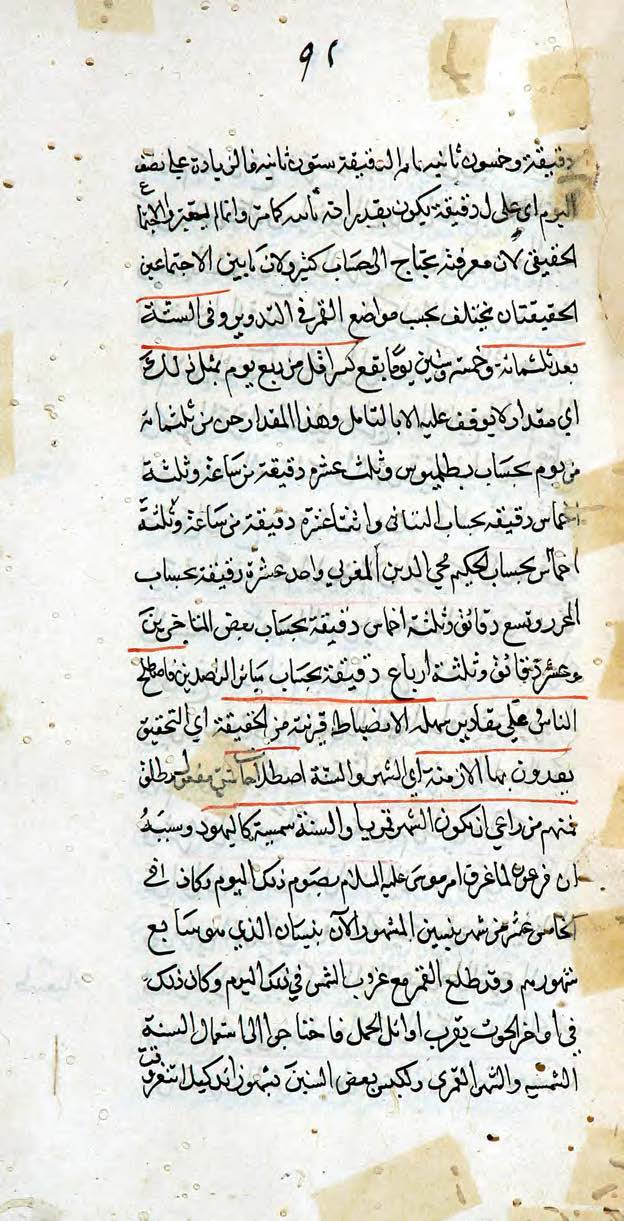 ٩٢
دقيقة وخمسون ثانية تمام الدقيقة ستون ثانية فالزيادة على نصف
اليوم اي على ل دقيقة يكون بقدر ثانية كاملة وانما لم يعتبر الاجتماع
الحقيقي لان معرفته يحتاج الى حساب كثير ولان ما بين الاجتماعين
الحقيقتان يختلف بحسب مواضع القمر في التدوير وفي السنة
بعد ثلثمائة وخمسة وستين يوما يقع كسر اقل من ربع يوم بمثل ذلك
اي مقدار لا يوقف عليه الا بالتامل وهذا المقدار جزء من ثلثمائة
من يوم بحساب بطلميوس وثلث عشرة دقيقة من ساعة وثلثة
اخماس دقيقة بحساب التباني واثنتا عشرة دقيقة من ساعة وثلثة
اخماس بحساب الحكيم محي الدين المغربي واحد عشرة دقيقة بحساب
المحرر وتسع دقائق وثلثة اخماس دقيقة بحساب بعض المتاخرين
وعشرة دقائق وثلثة ارباع دقيقة بحساب سائر الراصدين فاصطلح
الناس على مقادير سهلة الانضباط قريبة من الحقيقة اي التحقيق
يعدون بها الازمنة اي الشهر والسنة اصطلاحا شتى مفعول مطلق
فمنهم من راعى ان يكون الشهر قمريا والسنة شمسية كاليهود وسببه
ان فرعون لما غرق امر موسى عليه السلام بصوم ذلك اليوم وكان في
الخامس عشر من شهر نيسن المشهور الآن بنيسان الذي هو سابع
شهورهم وقد طلع القمر مع غروب الشمس في ذلك اليوم وكان ذلك
في اواخر الحوت بقرب اوائل الحمل فاحتاجوا الى استعمال السنة
الشمسية والشهر القمري وكبس بعض السنين بشهر زائد كيلا يتغير وقت